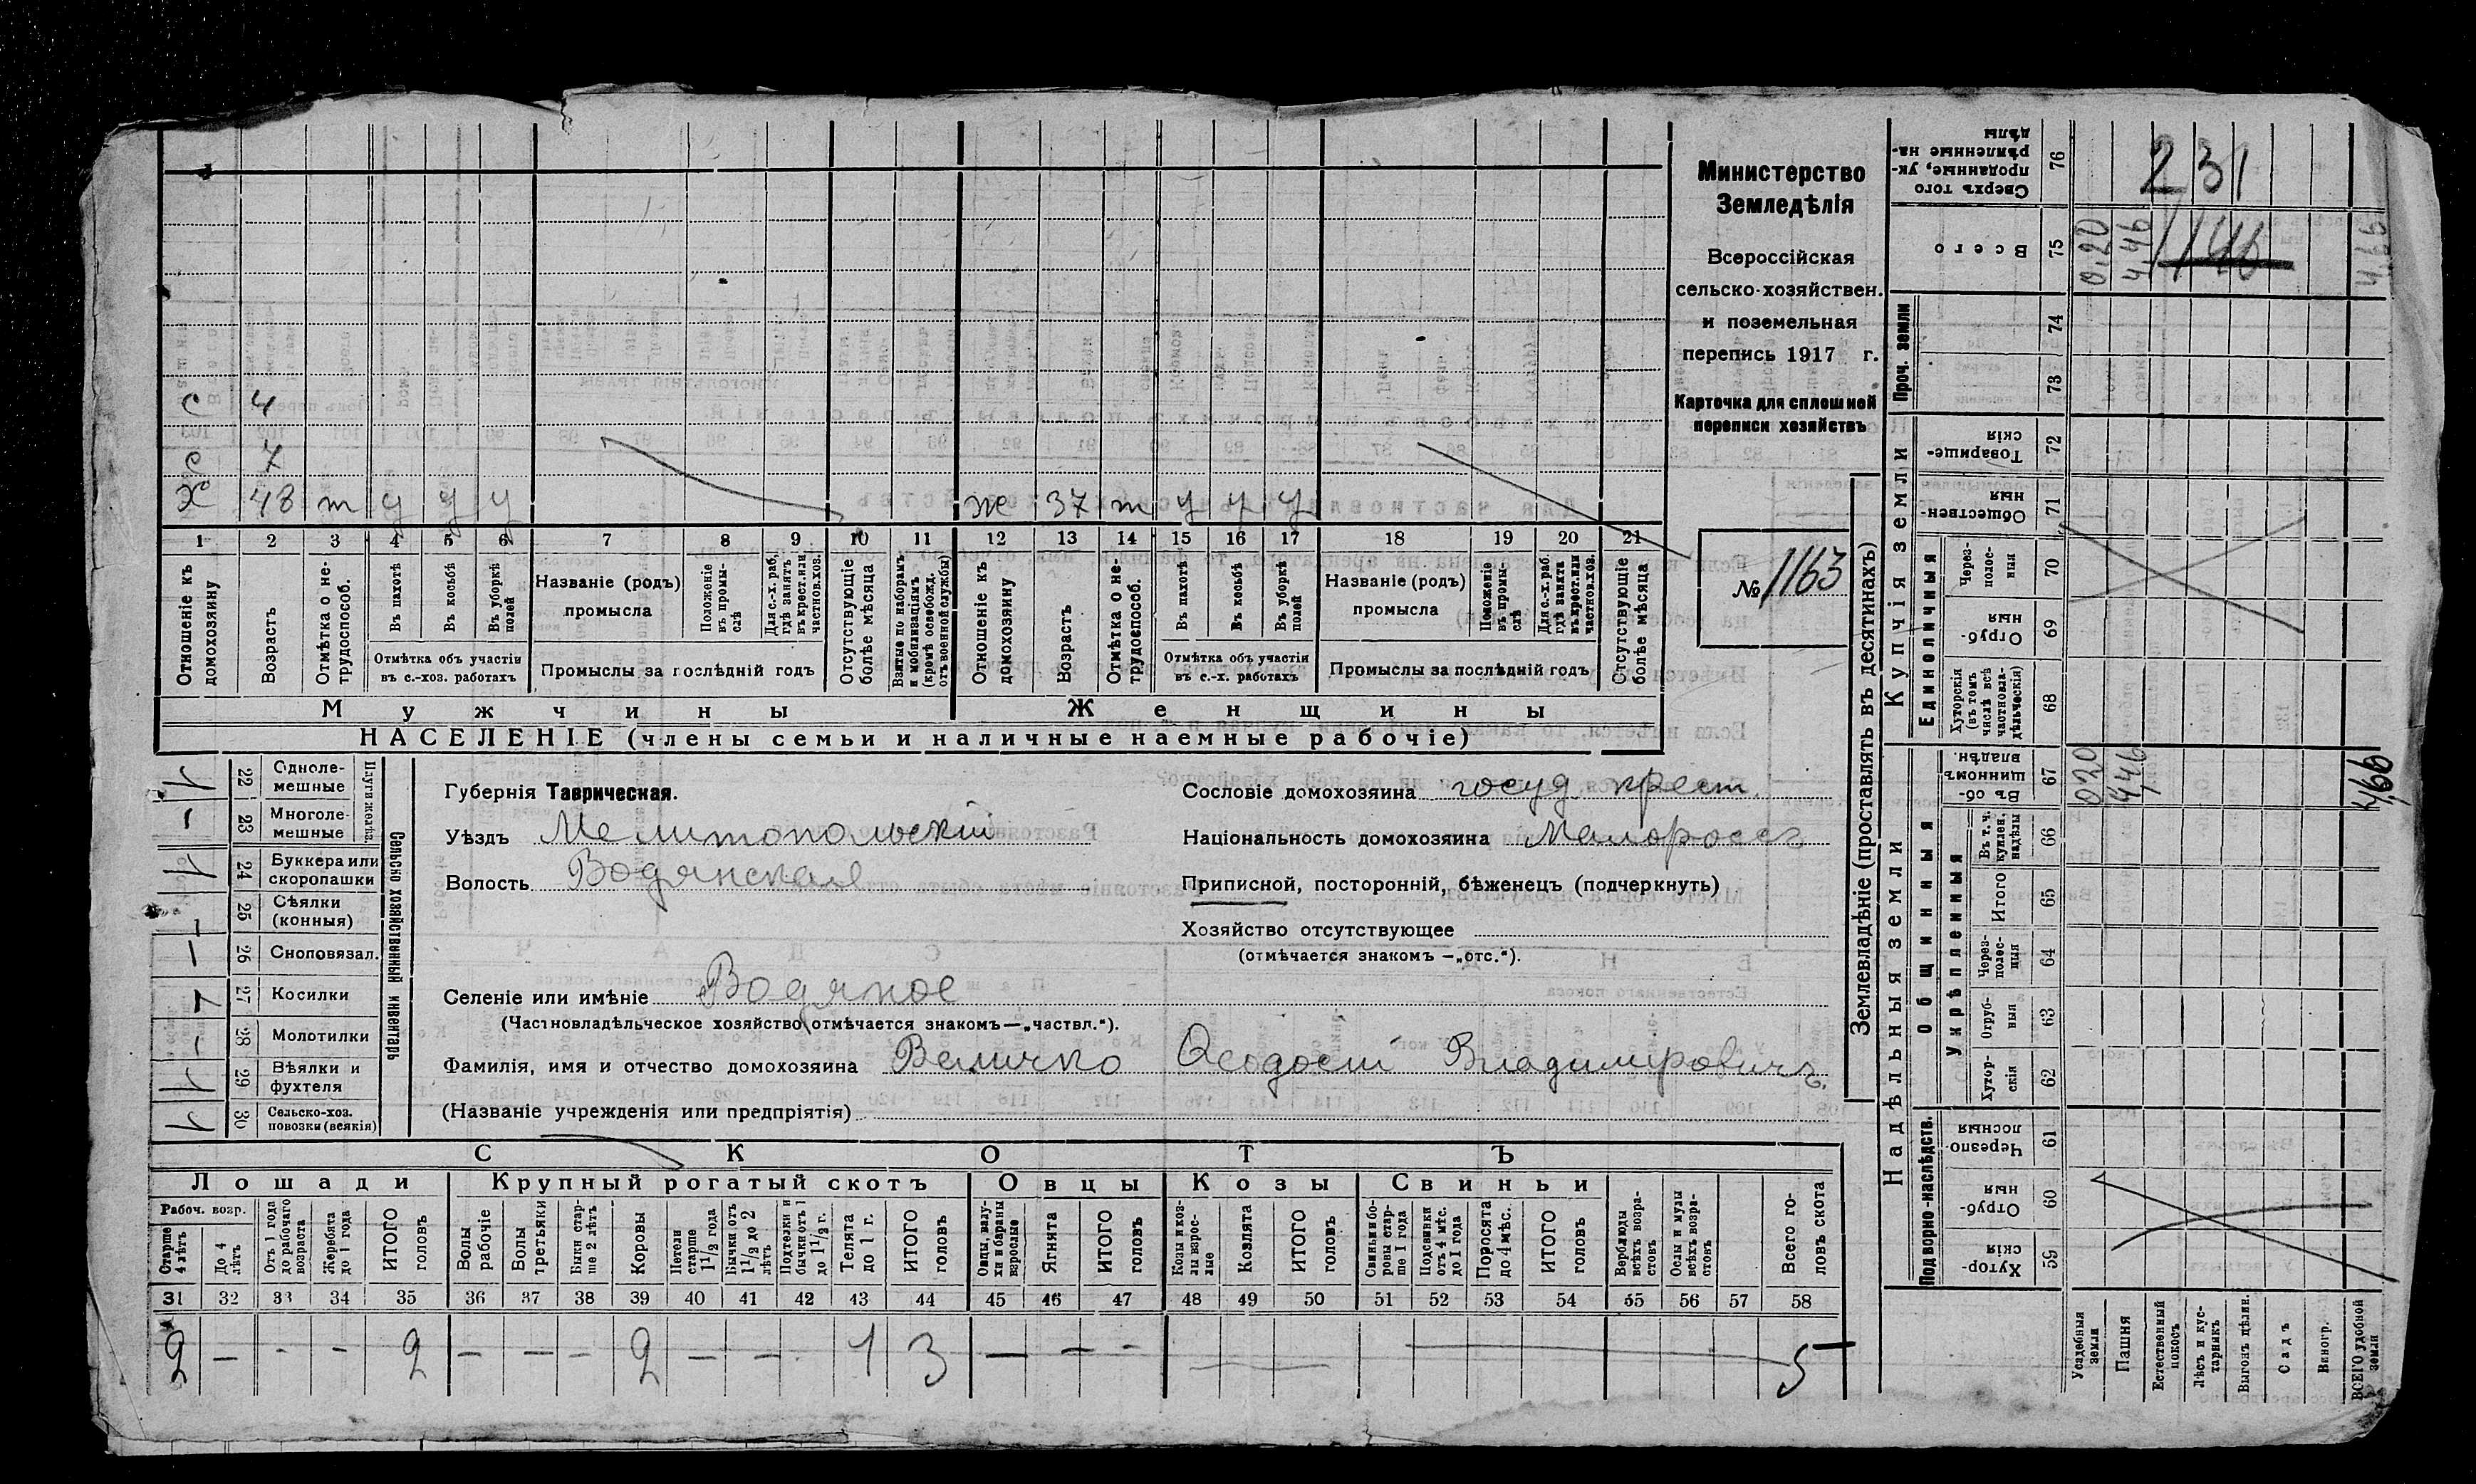 с 4
с 7
Х 48 т у у у ж 37 т у у у
1 2 3 4 5 6 7 8 9 10 11 12 13 14 15 16 17 18 19 20 21
Отношеніе къ домохозяину
Возрастъ
Отмѣтка о не-трудоспособ.
Въ пахотѣ
Въ косьбѣ
Въ уборкѣ полей
Отмѣтка объ участіи
въ с.-хоз. работахъ
Названіе (родъ)
промысла
Положеніе въ промы-слѣ
Для с.-х. раб. гдѣ занятъ въ крест. или частнов. хоз.
Промыслы за послѣдній годъ
Отсутствующіе болѣе мѣсяца
Взятые по наборамъ и мобилизаціямъ (кромѣ освобожд. отъ военной службы)
Отношеніе къ домохозяину
Возрастъ
Отмѣтка о не-трудоспособ.
Въ пахотѣ
Въ косьбѣ
Въ уборкѣ полей
Отмѣтка объ участіи
въ с.-х. работахъ
Названіе (родъ)
промысла
Положеніе въ промы-слѣ
Для с.-х. раб. гдѣ занята въ крест. или частнов. хоз.
Промыслы за послѣдній годъ
Отсутствующіе болѣе мѣсяца
Мужчины Женщины
НАСЕЛЕНІЕ (члены семьи и наличные наемные рабочіе)
Министерство
Земледѣлія
Всероссійская
сельско-хозяйствен.
и поземельная
перепись 1917 г.
Карточка для сплошной
переписи хозяйствъ
№ 1163
Сельско хозяйственный инвентарь
Плуги желѣз.
22 Одноле-мешные 1
23 Многоле-мешные –
24 Буккера или скоропашки 1
25 Сѣялки (конныя) –
26 Сноповязал. –
27 Косилки
28 Молотилки –
29 Вѣялки и фухтеля 1
30 Сельско-хоз. повозки (всякія) 1
Губернія Таврическая.
Уѣздъ Мелитопольскій
Волость Водянская
Сословіе домохозяина госуд. крест.
Національность домохозяина Малороссъ
Приписной, посторонній, бѣженецъ (подчеркнуть)
Хозяйство отсутствующее
(отмѣчается знакомъ —„отс.“).
Селеніе или имѣніе Водяное
(Частновладѣльческое хозяйство отмѣчается знакомъ—„частвл.“).
Фамилія, имя и отчество домохозяина Величко Ѳеодосій Владимировичъ.
(Названіе учрежденія или предпріятія)
СКОТЪ
Лошади Крупный рогатый скотъ Овцы Козы Свиньи
Рабоч. возр.
Старше 4 лѣтъ
До 4 лѣтъ
Отъ 1 года до рабочаго возраста
Жеребята до 1 года
ИТОГО головъ
Волы рабочіе
Волы третьяки
Быки стар-ше 2 лѣтъ
Коровы
Нетели старше 1 1/2 года
Бычки отъ 1 1/2 до 2 лѣтъ
Подтелки и бычки отъ 1 до 1 1/2 г.
Телята до 1 г.
ИТОГО головъ
Овцы, валу-хи и бараны взрослые
Ягнята
ИТОГО головъ
Козы и коз-лы взрос-лые
Козлята
ИТОГО головъ
Свиньи и бо-ровы стар-ше 1 года
Подсвинки отъ 4 мѣс. до 1 года
Поросята до 4 мѣс.
ИТОГО головъ
Верблюды всѣхъ возра-стовъ
Ослы и мулы всѣхъ возра-стовъ
Всего го-ловъ скота
31 32 33 34 35 36 37 38 39 40 41 42 43 44 45 46 47 48 49 50 51 52 53 54 55 56 57 58
2 – – – 2 – – – 2 – – – 1 3 – – – 5
Землевладѣніе (проставлять въ десятинахъ)
Надѣльныя земли Купчія земли Проч. земли
Подворно-наслѣдств.
Общинныя
Укрѣпленныя
Единоличныя
Сверхъ того проданные, ук-рѣпленные на-дѣлы 76 231
Всего 75 0,20 4,46 1146 4,66
74
73
Товарище-скія 72
Обществен-ныя 71
Через-полос-ныя 70
Отруб-ныя 69
Хуторскія (въ томъ числѣ всѣ частновла-дѣльческія) 68
Въ об-щинномъ владѣн. 67 0,20 4,46 4,66
Въ т. ч. куплен. надѣлы 66
Итого 65
Через-полос-ныя 64
Отруб-ныя 63
Хутор-скія 62
Черезпо-лосныя 61
Отруб-ныя 60
Хутор-скія 59
Усадебныя земли
Пашня
Естественный покосъ
Лѣсъ и кус-тарникъ
Выгонъ цѣлин.
Садъ
Виногр.
ВСЕГО удобной земли